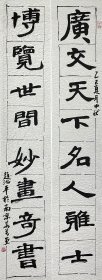 廣交天下名人雅士
博覽世間妙畫奇書